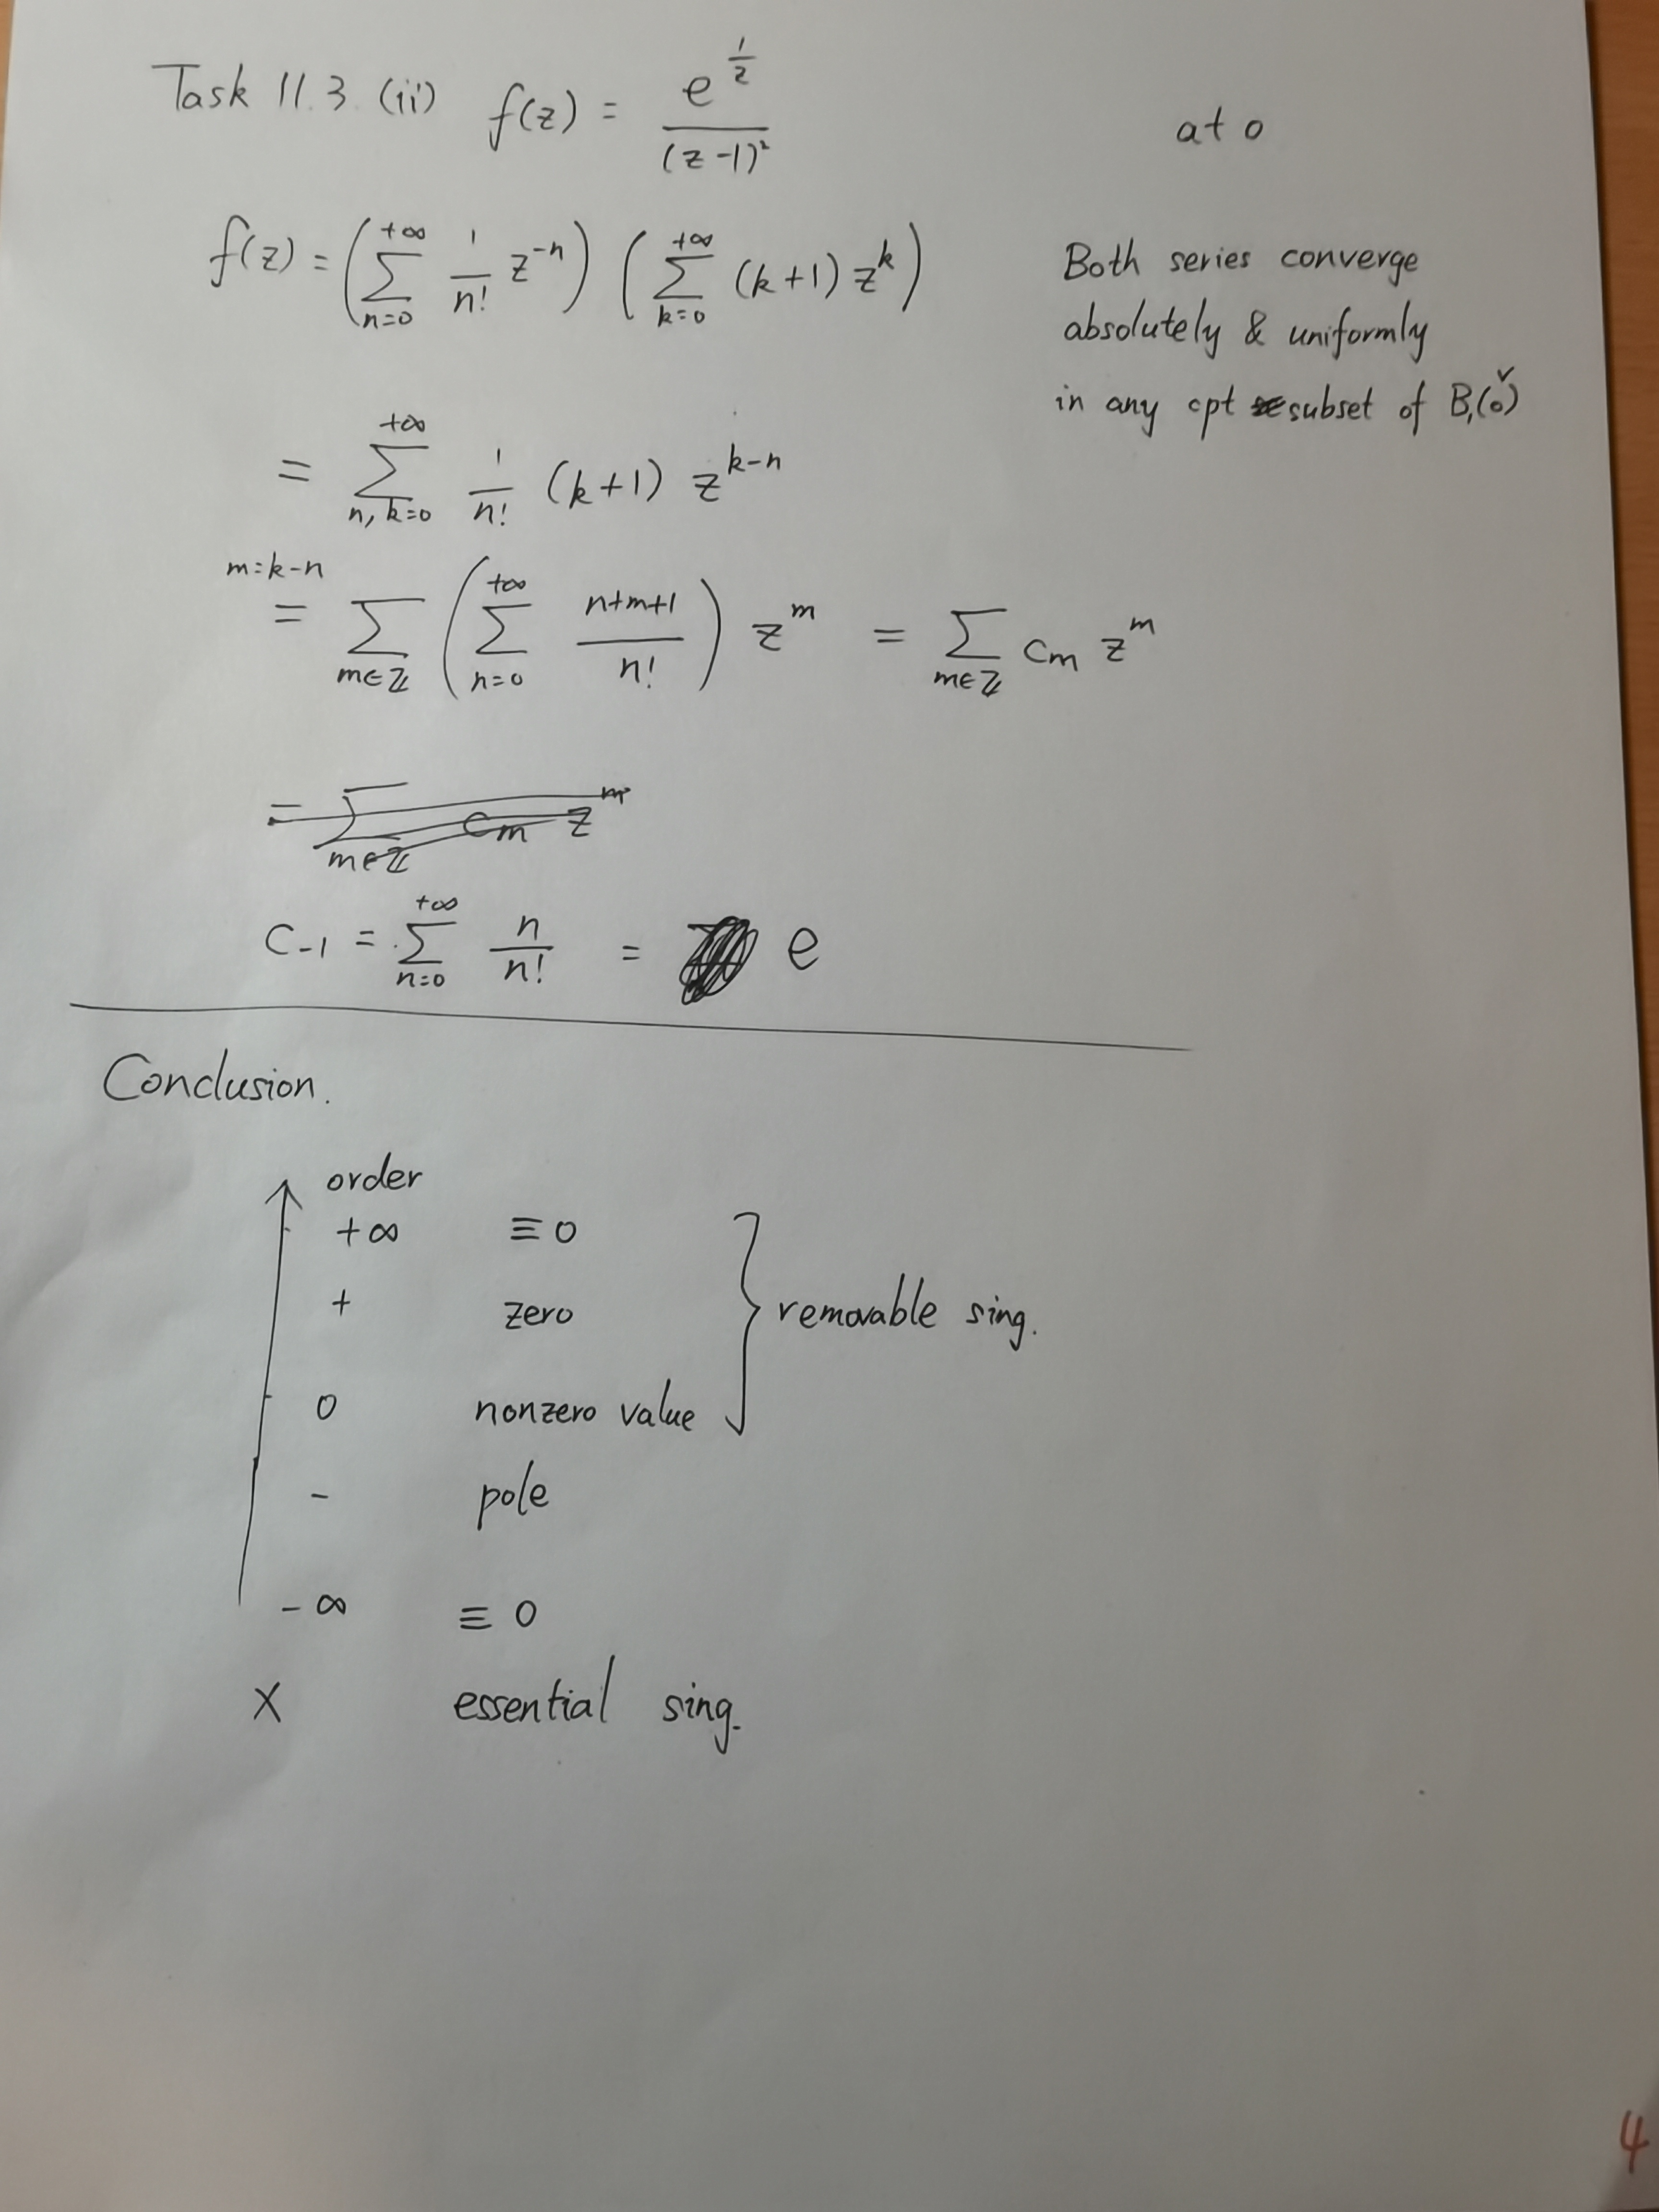 Task 11.3 (ii) f(z) = e^{1/z} / (z-1)² at 0
f(z) = ( \sum_{n=0}^{+∞} \frac{1}{n!} z^{-n} ) ( \sum_{k=0}^{+∞} (k+1) z^k ) Both series converge
absolutely & uniformly
in any cpt subset of B₁(0̌)
= \sum_{n,k=0}^{+∞} \frac{1}{n!} (k+1) z^{k-n}
m=k-n
= \sum_{m∈ℤ} ( \sum_{n=0}^{+∞} \frac{n+m+1}{n!} ) z^m = \sum_{m∈ℤ} c_m z^m
= \sum_{m∈ℤ} c_m z^m
C_{-1} = \sum_{n=0}^{+∞} \frac{n}{n!} = e
Conclusion.
order
+∞ ≡ 0
+ zero
removable sing.
0 nonzero value
- pole
-∞ ≡ 0
X essential sing.
4